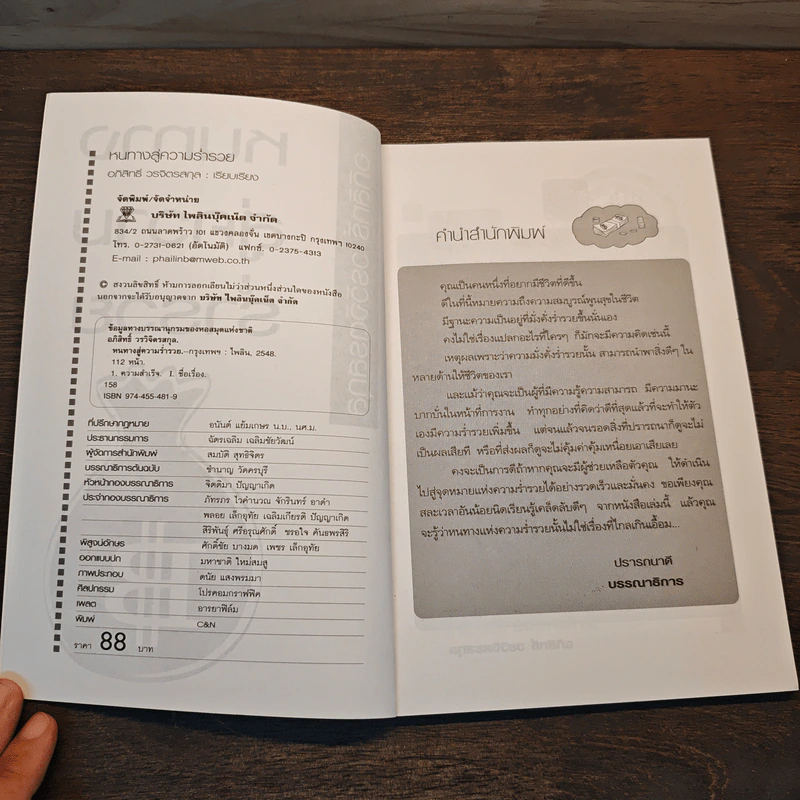 หนทางสู่ความร่ำรวย
อภิสิทธิ์ วรจิตรสกุล : เรียบเรียง
จัดพิมพ์/จัดจำหน่าย
บริษัท ไพลินบุ๊คเน็ต จำกัด
834/2 ถนนลาดพร้าว 101 แขวงคลองจั่น เขตบางกะปิ กรุงเทพฯ 10240
โทร. 0-2731-0621 (อัตโนมัติ) แฟกซ์. 0-2375-4313
E-mail : phailinb@mweb.co.th
© สงวนลิขสิทธิ์ ห้ามการลอกเลียนไม่ว่าส่วนหนึ่งส่วนใดของหนังสือ
นอกจากจะได้รับอนุญาตจาก บริษัท ไพลินบุ๊คเน็ต จำกัด
ข้อมูลทางบรรณานุกรมของหอสมุดแห่งชาติ
อภิสิทธิ์ วรวิจิตรสกุล.
หนทางสู่ความร่ำรวย.--กรุงเทพฯ : ไพลิน, 2548.
112 หน้า.
1. ความสำเร็จ. I. ชื่อเรื่อง.
158
ISBN 974-455-481-9
ที่ปรึกษากฎหมาย อนันต์ แย้มเกษร น.บ., นศ.ม.
ประธานกรรมการ ฉัตรเฉลิม เฉลิมชัยวัฒน์
ผู้จัดการสำนักพิมพ์ สมบัติ สุทธิจิตร
บรรณาธิการต้นฉบับ ชำนาญ วัดครบุรี
หัวหน้ากองบรรณาธิการ จิตติมา ปัญญาเกิด
ประจำกองบรรณาธิการ ภัทรภร ไวคำนวณ จักรินทร์ อาดำ
พลอย เล็กอุทัย เฉลิมเกียรติ ปัญญาเกิด
สิริพันธุ์ ศรีอรุณศักดิ์ ขรอใจ คันธพรสิริ
พิสูจน์อักษร ศักดิ์ชัย บางมด เพชร เล็กอุทัย
ออกแบบปก มหาชาติ ใหม่สมสู
ภาพประกอบ ดนัย แสงพรมมา
ศิลปกรรม โปรคอมกราฟฟิค
เพลต อารยาฟิล์ม
พิมพ์ C&N
ราคา 88 บาท
คำนำสำนักพิมพ์
คุณเป็นคนหนึ่งที่อยากมีชีวิตที่ดีขึ้น
ดีในที่นี้หมายความถึงความสมบูรณ์พูนสุขในชีวิต
มีฐานะความเป็นอยู่ที่มั่งคั่งร่ำรวยขึ้นนั่นเอง
คงไม่ใช่เรื่องแปลกอะไรที่ใครๆ ก็มักจะมีความคิดเช่นนี้
เหตุผลเพราะว่าความมั่งคั่งร่ำรวยนั้น สามารถนำพาสิ่งดีๆ ใน
หลายด้านให้ชีวิตของเรา
และแม้ว่าคุณจะเป็นผู้ที่มีความรู้ความสามารถ มีความมานะ
บากบั่นในหน้าที่การงาน ทำทุกอย่างที่คิดว่าดีที่สุดแล้วที่จะทำให้ตัว
เองมีความร่ำรวยเพิ่มขึ้น แต่จนแล้วจนรอดสิ่งที่ปรารถนาก็ดูจะไม่
เป็นผลเสียที หรือที่ส่งผลก็ดูจะไม่คุ้มค่าคุ้มเหนื่อยเอาเสียเลย
คงจะเป็นการดีถ้าหากคุณจะมีผู้ช่วยเหลือตัวคุณ ให้ดำเนิน
ไปสู่จุดหมายแห่งความร่ำรวยได้อย่างรวดเร็วและมั่นคง ขอเพียงคุณ
สละเวลาอันน้อยนิดเรียนรู้เคล็ดลับดีๆ จากหนังสือเล่มนี้ แล้วคุณ
จะรู้ว่าหนทางแห่งความร่ำรวยนั้นไม่ใช่เรื่องที่ไกลเกินเอื้อม...
ปรารถนาดี
บรรณาธิการ